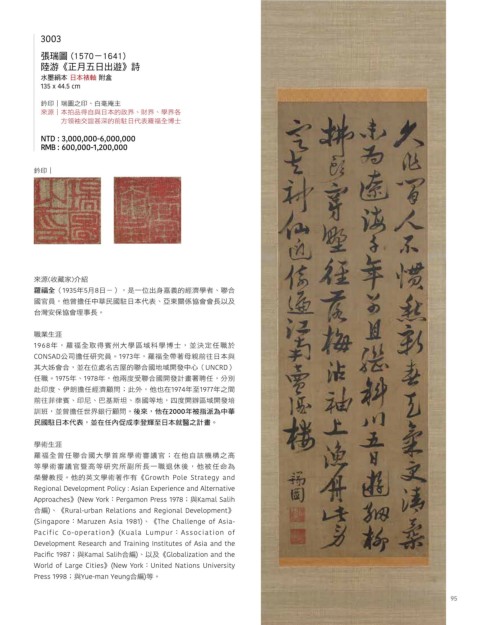 3003
張瑞圖（1570－1641）
陸游《正月五日出遊》詩
水墨絹本 日本裱軸 附盒
135 x 44.5 cm
鈐印｜瑞圖之印、白毫庵主
來源｜本拍品得自與日本的政界、財界、學界各
方領袖交誼甚深的前駐日代表羅福全博士
NTD : 3,000,000-6,000,000
RMB : 600,000-1,200,000
鈐印｜
來源(收藏家)介紹
羅福全（1935年5月8日－），是一位出身嘉義的經濟學者、聯合
國官員，他曾擔任中華民國駐日本代表、亞東關係協會會長以及
台灣安保協會理事長。
職業生涯
1968年，羅福全取得賓州大學區域科學博士，並決定任職於
CONSAD公司擔任研究員。1973年，羅福全帶著母親前往日本與
其大姊會合，並在位處名古屋的聯合國地域開發中心（UNCRD）
任職。1975年、1978年，他兩度受聯合國開發計畫署聘任，分別
赴印度、伊朗擔任經濟顧問；此外，他也在1974年至1977年之間
前往菲律賓、印尼、巴基斯坦、泰國等地，四度開辦區域開發培
訓班，並曾擔任世界銀行顧問。後來，他在2000年被指派為中華
民國駐日本代表，並在任內促成李登輝至日本就醫之計畫。
學術生涯
羅福全曾任聯合國大學首席學術審議官；在他自該機構之高
等學術審議官暨高等研究所副所長一職退休後，他被任命為
榮譽教授。他的英文學術著作有《Growth Pole Strategy and
Regional Development Policy : Asian Experience and Alternative
Approaches》(New York：Pergamon Press 1978；與Kamal Salih
合編)、《Rural-urban Relations and Regional Development》
(Singapore：Maruzen Asia 1981)、《The Challenge of Asia-
Pacific Co-operation》(Kuala Lumpur：Association of
Development Research and Training Institutes of Asia and the
Pacific 1987；與Kamal Salih合編)、以及《Globalization and the
World of Large Cities》(New York：United Nations University
Press 1998；與Yue-man Yeung合編)等。
久作閒人不慣愁新春天氣更清柔
未為遠海千年別且繼斜川五日遊細柳
拂頭穿野徑落梅沾袖上漁舟此身
定是神仙邊倚遍江南賣酒樓
瑞圖
95